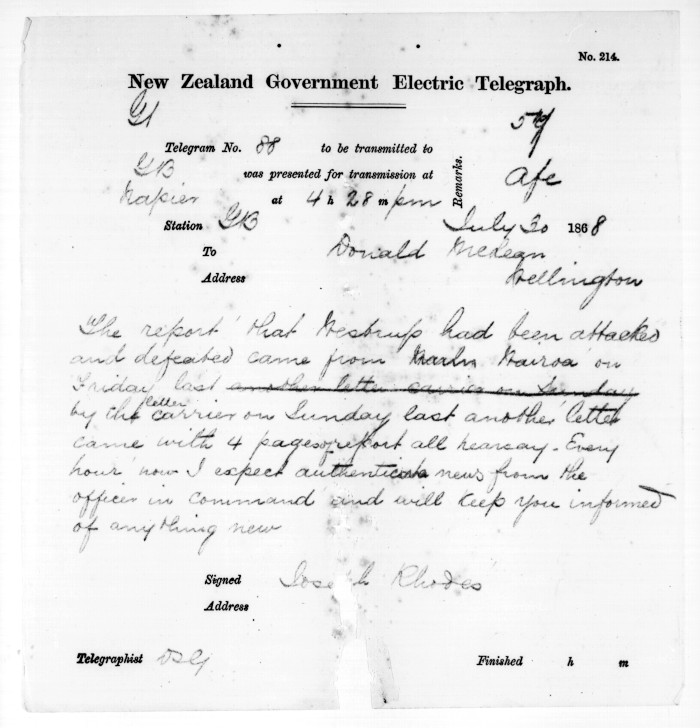 No. 214.
New Zealand Government Electric Telegraph.
Telegram No. 88 to be transmitted to
was presented for transmission at
Napier at 4 h 28 m pm
Remarks.
Station
July 30 1868
To Donald McLean
Address Wellington
The report that Westrup had been attacked
and defeated came from Wairoa on
Friday last another letter carrier on Sunday
by the letter carrier on Sunday last another letter
came with 4 pages of report all hearsay. Every
hour now I expect authentic news from the
officer in command and will keep you informed
of anything new
Signed Joseph Rhodes
Address
Telegraphist
Finished h m